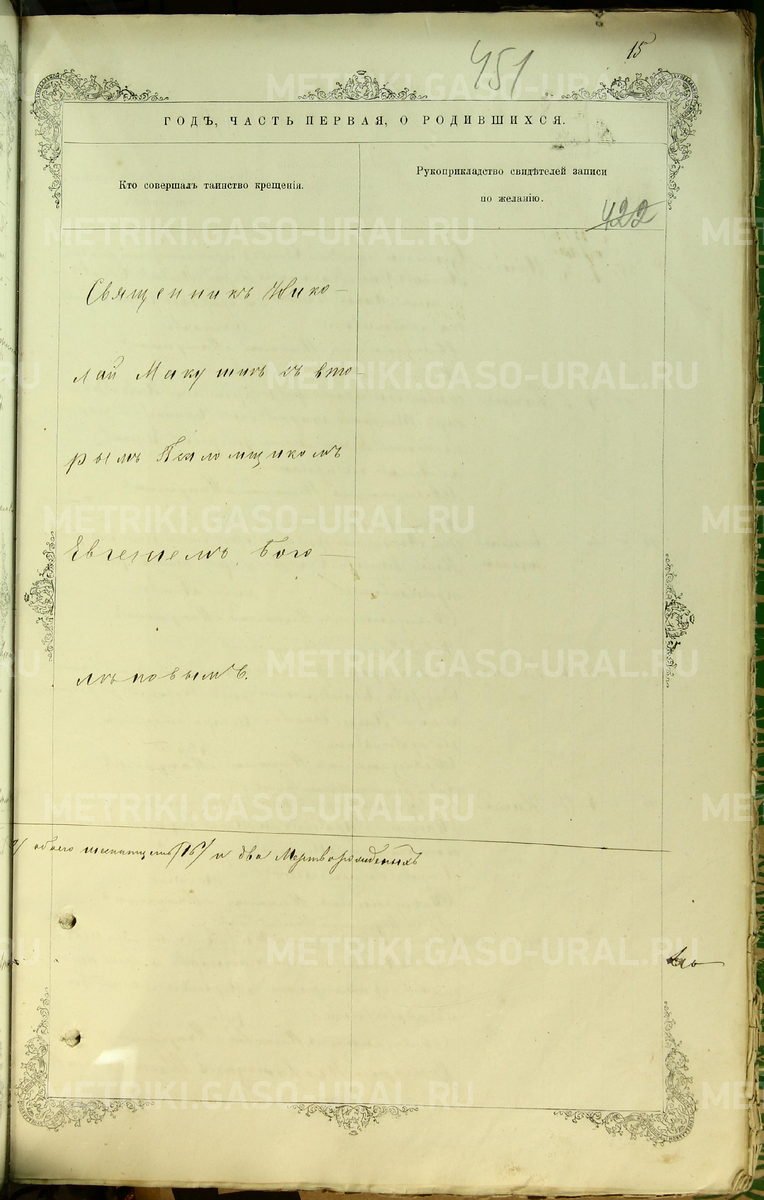 451
15
ГОДЪ, ЧАСТЬ ПЕРВАЯ, О РОДИВШИХСЯ.
Кто совершалъ таинство крещенія.
Рукоприкладство свидѣтелей записи
по желанію.
422
Священникъ Нико-
лай Макушинъ съ вто-
рымъ Псаломщикомъ
Евгеніемъ Бого-
лѣповымъ.
обоего и два Мертворожденныхъ
METRIKI.GASO-URAL.RU